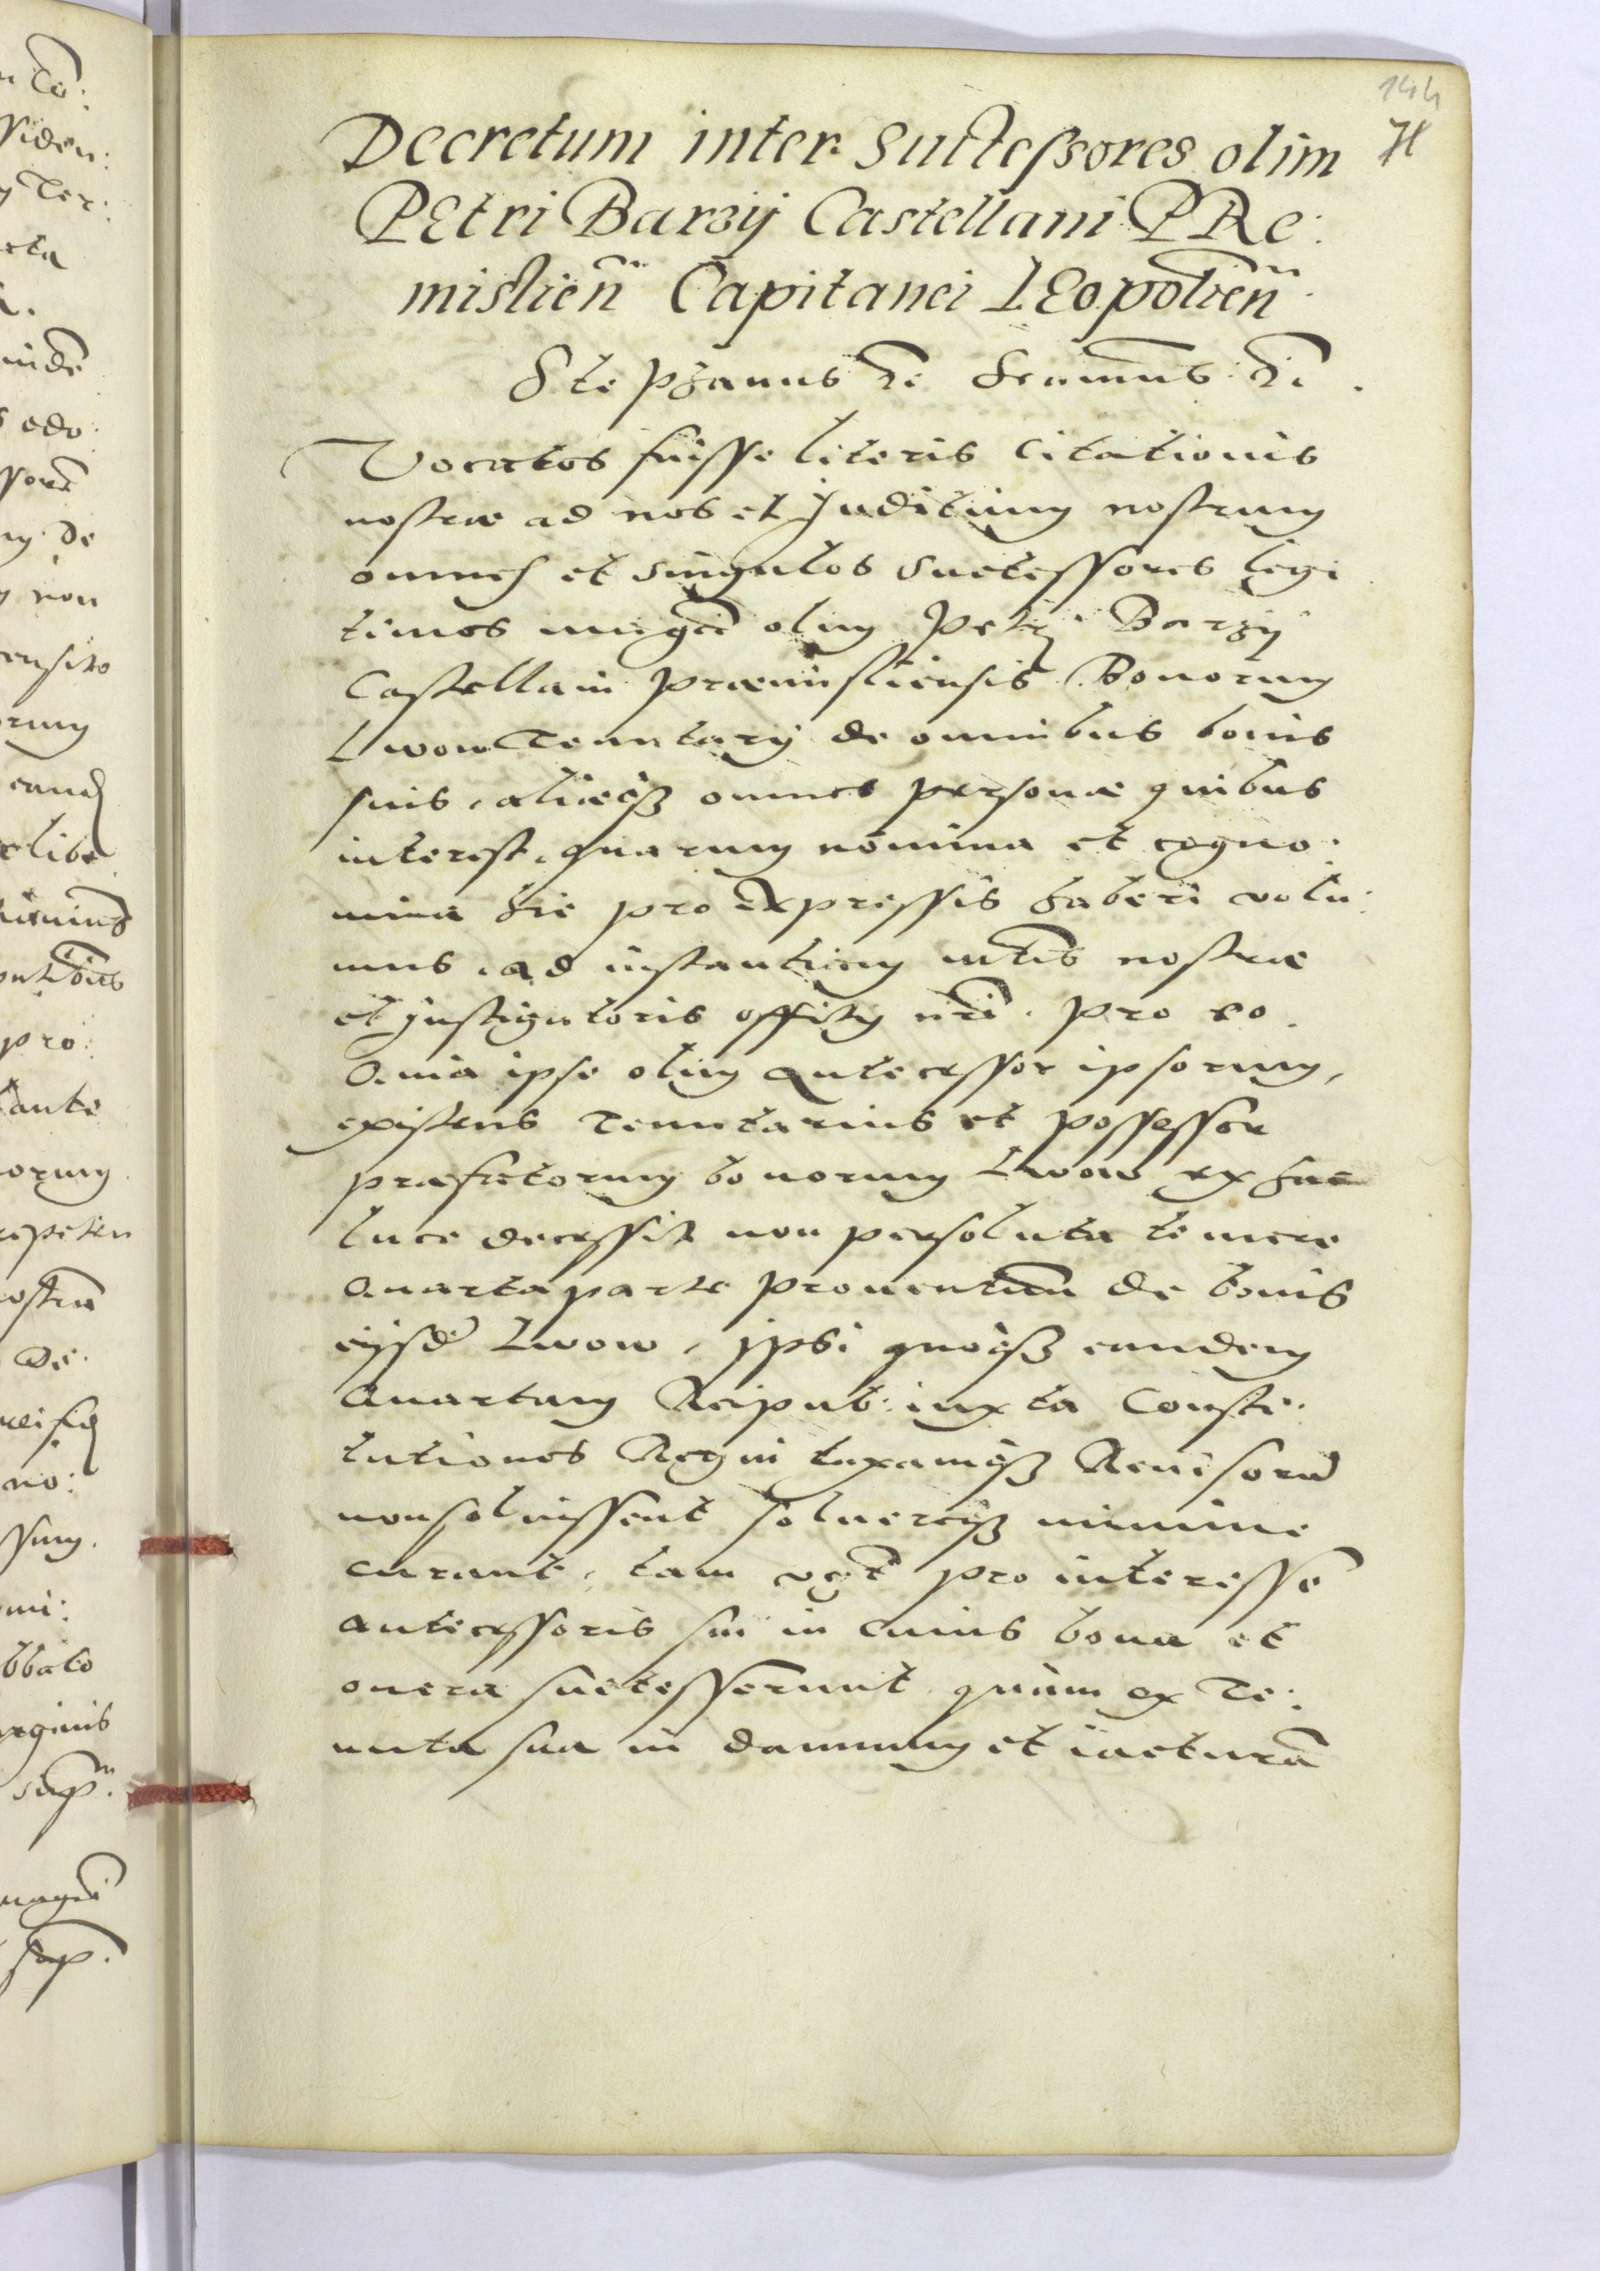 144
71
Decretum inter Successores olim
PEtri Barzÿ Castellani PRe:
mislień Capitanei LEopolień
Stephanus
Vocatos fuisse literis citationis
nostræ ad nos et Juditium nostrum
omnes et singulos Suctessores legi
timos magci olim Petri Barzÿ
Castellani Præmisliensis Bonorum
Lwow Tenutarÿ de omnibus bonis
suis, aliæq3 omnes personæ quibus
interest, quarum nomina et cogno:
mina hic pro expressis haberi volu:
mus, ad instantiam mtis nostræ
et Justigatoris offity nri. Pro eo
Quia ipse olim antecessor ipsorum,
existens Tenutarius et possessor
præfectorum bonorum Lwow ex hac
luce decessit non persoluta temere
Quarta parte prouentuu de bonis
eijsd Lwow, Jpsi quoq3 eandem
Quartam Reipub: iuxta Consti:
tutiones Regni taxamq3 Reuisoru
non soluissent soluereq3 minime
curant, tam vęt pro interesse
antecessoris sui in cuius bona et
onera suctesserunt quàm ex Te:
nuta sua in damnum et iacturã